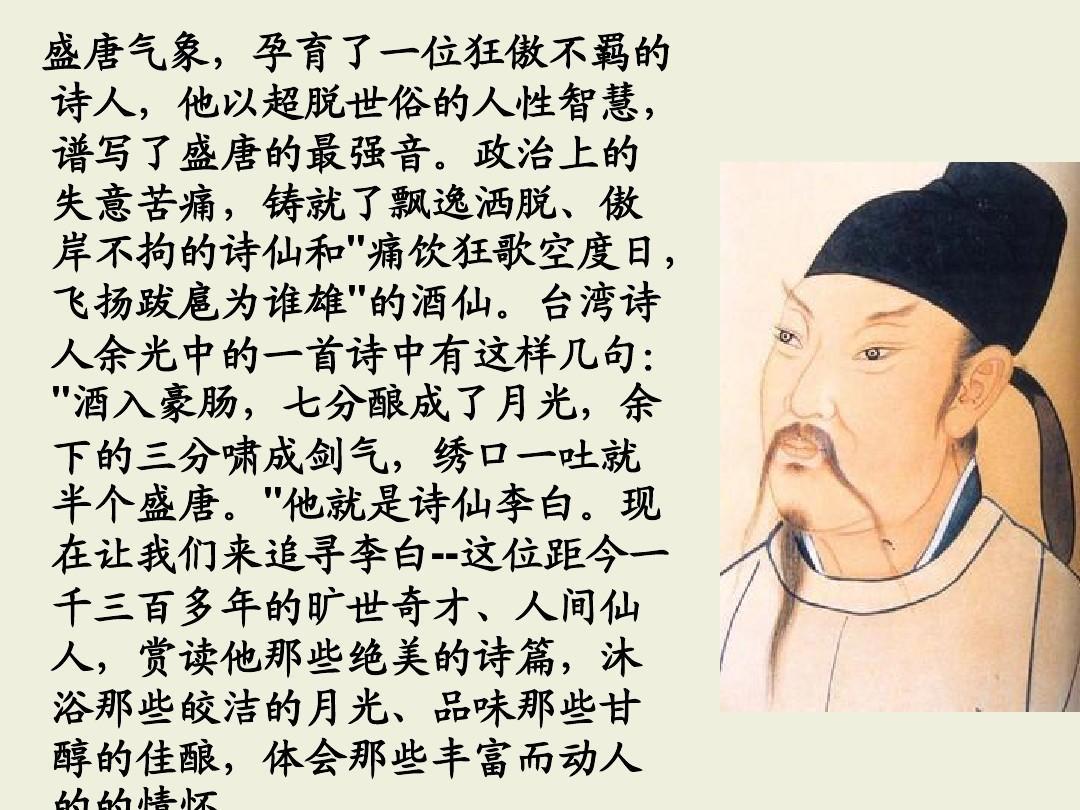 盛唐气象，孕育了一位狂傲不羁的
诗人，他以超脱世俗的人性智慧，
谱写了盛唐的最强音。政治上的
失意苦痛，铸就了飘逸洒脱、傲
岸不拘的诗仙和"痛饮狂歌空度日，
飞扬跋扈为谁雄"的酒仙。台湾诗
人余光中的一首诗中有这样几句：
"酒入豪肠，七分酿成了月光，余
下的三分啸成剑气，绣口一吐就
半个盛唐。"他就是诗仙李白。现
在让我们来追寻李白--这位距今一
千三百多年的旷世奇才、人间仙
人，赏读他那些绝美的诗篇，沐
浴那些皎洁的月光、品味那些甘
醇的佳酿，体会那些丰富而动人
的的情怀